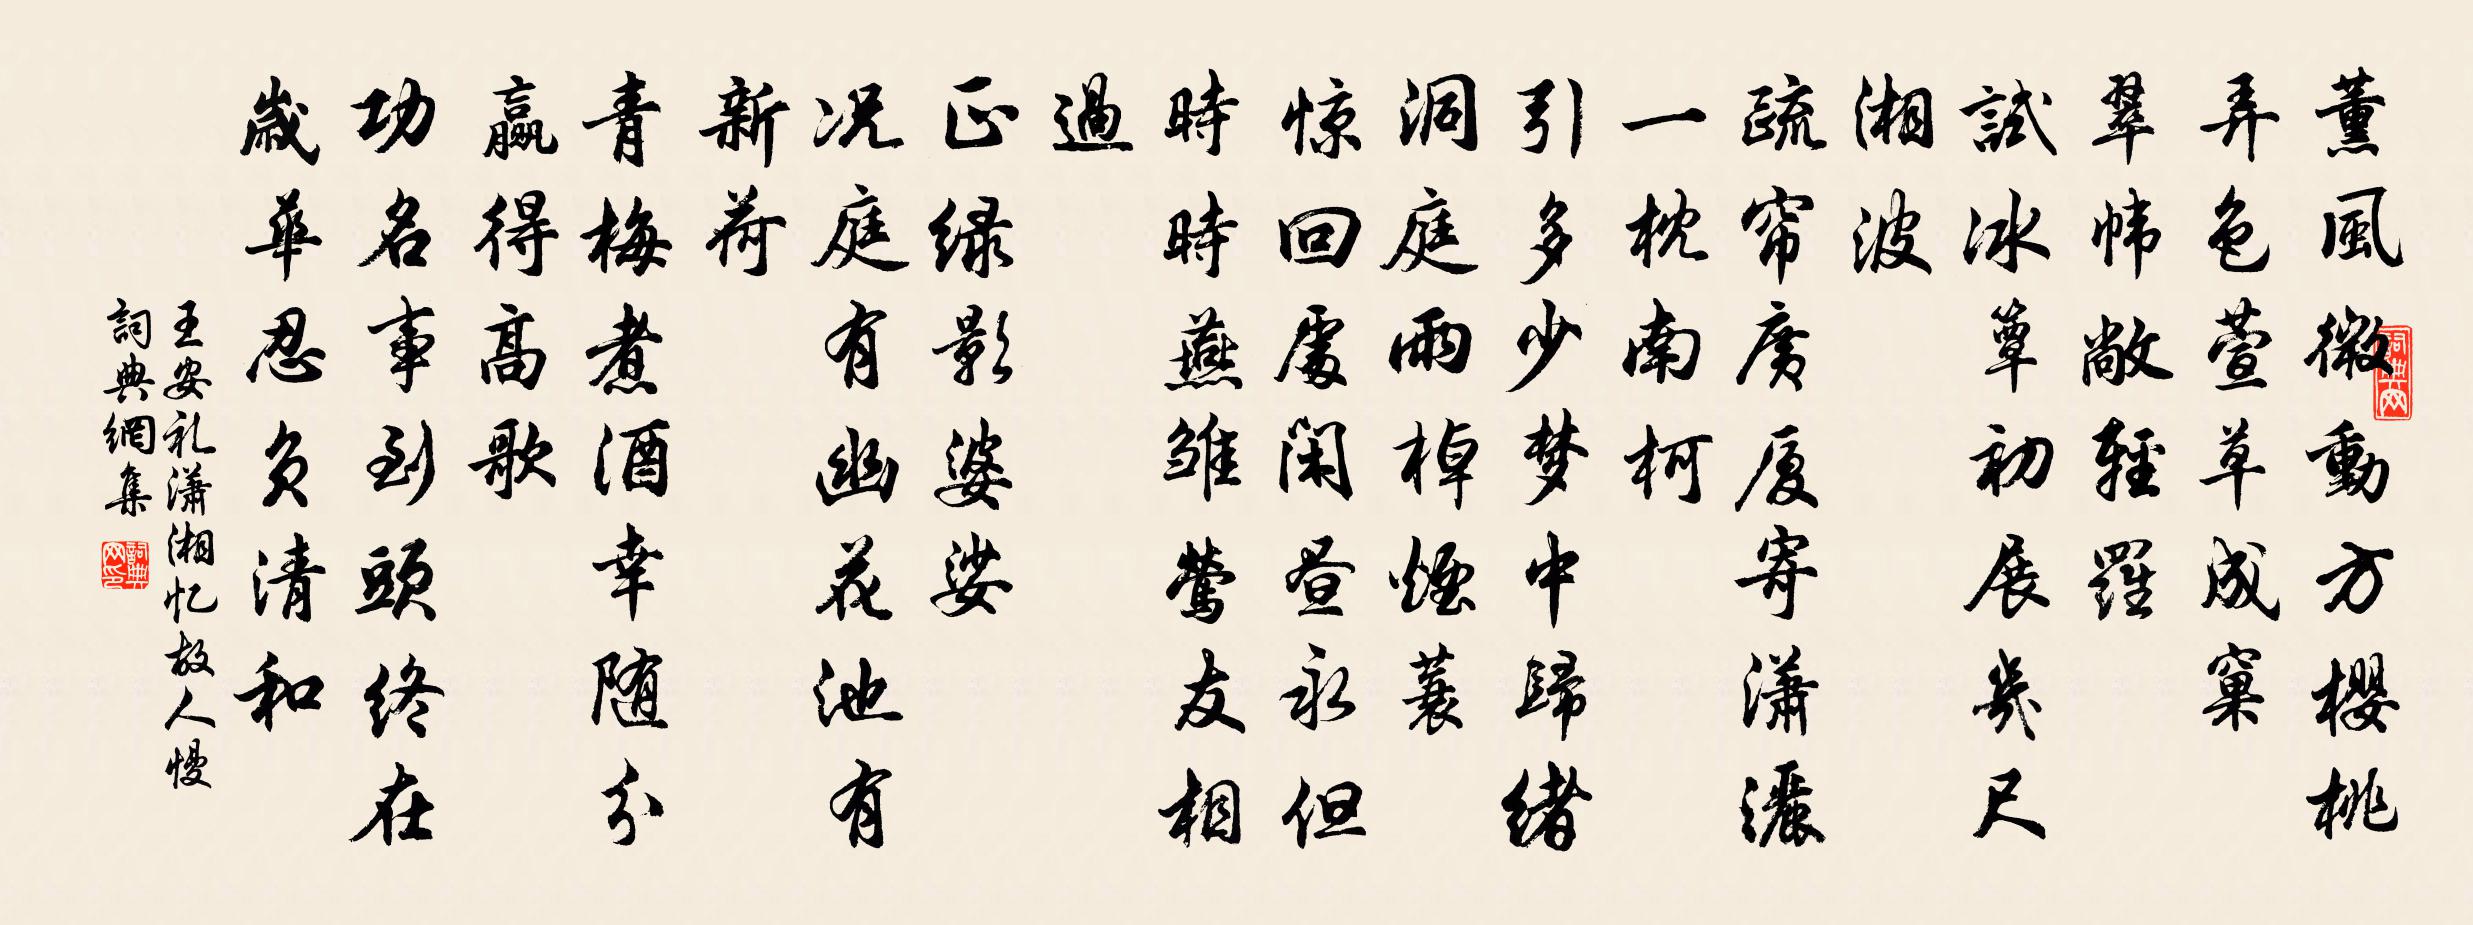 薰風微動方櫻桃
弄色萱草成窠
翠幃敞輕羅
試冰簟初展幾尺
湘波
疏帘廣厦寄瀟灑
一枕南柯
引多少梦中歸緒
洞庭雨棹煙蓑
惊回處閑昼永但
時時燕雏鶯友相
過
正绿影婆娑
况庭有幽花池有
新荷
青梅煮酒幸随分
贏得高歌
功名事到頭终在
歲華忍负清和
王安礼瀟湘忆故人慢
詞典網集
詞典网
詞典网印